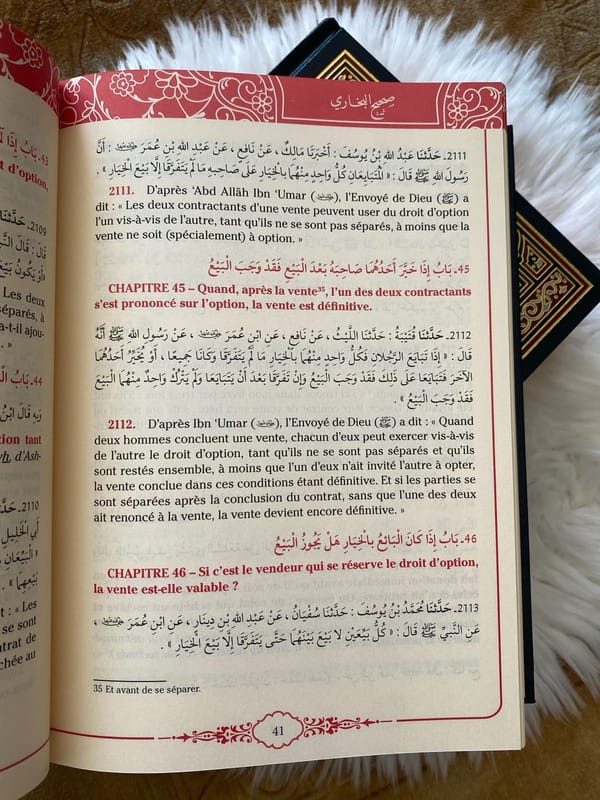 صحيح البخاري
2111. حَدَّثَنَا عَبْدُ اللهِ بْنُ يُوسُفَ : أَخْبَرَنَا مَالِكٌ، عَنْ نَافِعٍ، عَنْ عَبْدِ اللهِ بْنِ عُمَرَ رضي الله عنهما : أَنَّ
رَسُولَ اللهِ ﷺ قَالَ : « الْمُتَبَايِعَانِ كُلُّ وَاحِدٍ مِنْهُمَا بِالْخِيَارِ عَلَى صَاحِبِهِ مَا لَمْ يَتَفَرَّقَا إِلَّا بَيْعَ الْخِيَارِ » .
2111. D'après ‘Abd Allâh Ibn ‘Umar (رضي الله عنهما), l'Envoyé de Dieu (ﷺ) a
dit : « Les deux contractants d'une vente peuvent user du droit d'option
l'un vis-à-vis de l'autre, tant qu'ils ne se sont pas séparés, à moins que la
vente ne soit (spécialement) à option. »
45. بَابُ إِذَا خَيَّرَ أَحَدُهُمَا صَاحِبَهُ بَعْدَ الْبَيْعِ فَقَدْ وَجَبَ الْبَيْعُ
CHAPITRE 45 – Quand, après la vente³⁵, l'un des deux contractants
s'est prononcé sur l'option, la vente est définitive.
2112. حَدَّثَنَا قُتَيْبَةُ : حَدَّثَنَا اللَّيْثُ، عَنْ نَافِعٍ، عَنِ ابْنِ عُمَرَ رضي الله عنهما ، عَنْ رَسُولِ اللهِ ﷺ أَنَّهُ
قَالَ : « إِذَا تَبَايَعَ الرَّجُلَانِ فَكُلُّ وَاحِدٍ مِنْهُمَا بِالْخِيَارِ مَا لَمْ يَتَفَرَّقَا وَكَانَا جَمِيعًا، أَوْ يُخَيِّرُ أَحَدُهُمَا
الآخَرَ فَتَبَايَعَا عَلَى ذَلِكَ فَقَدْ وَجَبَ الْبَيْعُ وَإِنْ تَفَرَّقَا بَعْدَ أَنْ يَتَبَايَعَا وَلَمْ يَتْرُكْ وَاحِدٌ مِنْهُمَا الْبَيْعَ
فَقَدْ وَجَبَ الْبَيْعُ » .
2112. D'après Ibn ‘Umar (رضي الله عنهما), l'Envoyé de Dieu (ﷺ) a dit : « Quand
deux hommes concluent une vente, chacun d'eux peut exercer vis-à-vis
de l'autre le droit d'option, tant qu'ils ne se sont pas séparés et qu'ils
sont restés ensemble, à moins que l'un d'eux n'ait invité l'autre à opter,
la vente conclue dans ces conditions étant définitive. Et si les parties se
sont séparées après la conclusion du contrat, sans que l'une des deux
ait renoncé à la vente, la vente devient encore définitive. »
46. بَابُ إِذَا كَانَ الْبَائِعُ بِالْخِيَارِ هَلْ يَجُوزُ الْبَيْعُ
CHAPITRE 46 – Si c'est le vendeur qui se réserve le droit d'option,
la vente est-elle valable ?
2113. حَدَّثَنَا مُحَمَّدُ بْنُ يُوسُفَ : حَدَّثَنَا سُفْيَانُ، عَنْ عَبْدِ اللهِ بْنِ دِينَارٍ، عَنِ ابْنِ عُمَرَ رضي الله عنهما ،
عَنِ النَّبِيِّ ﷺ قَالَ : « كُلُّ بَيِّعَيْنِ لَا بَيْعَ بَيْنَهُمَا حَتَّى يَتَفَرَّقَا إِلَّا بَيْعَ الْخِيَارِ » .
35 Et avant de se séparer.
41